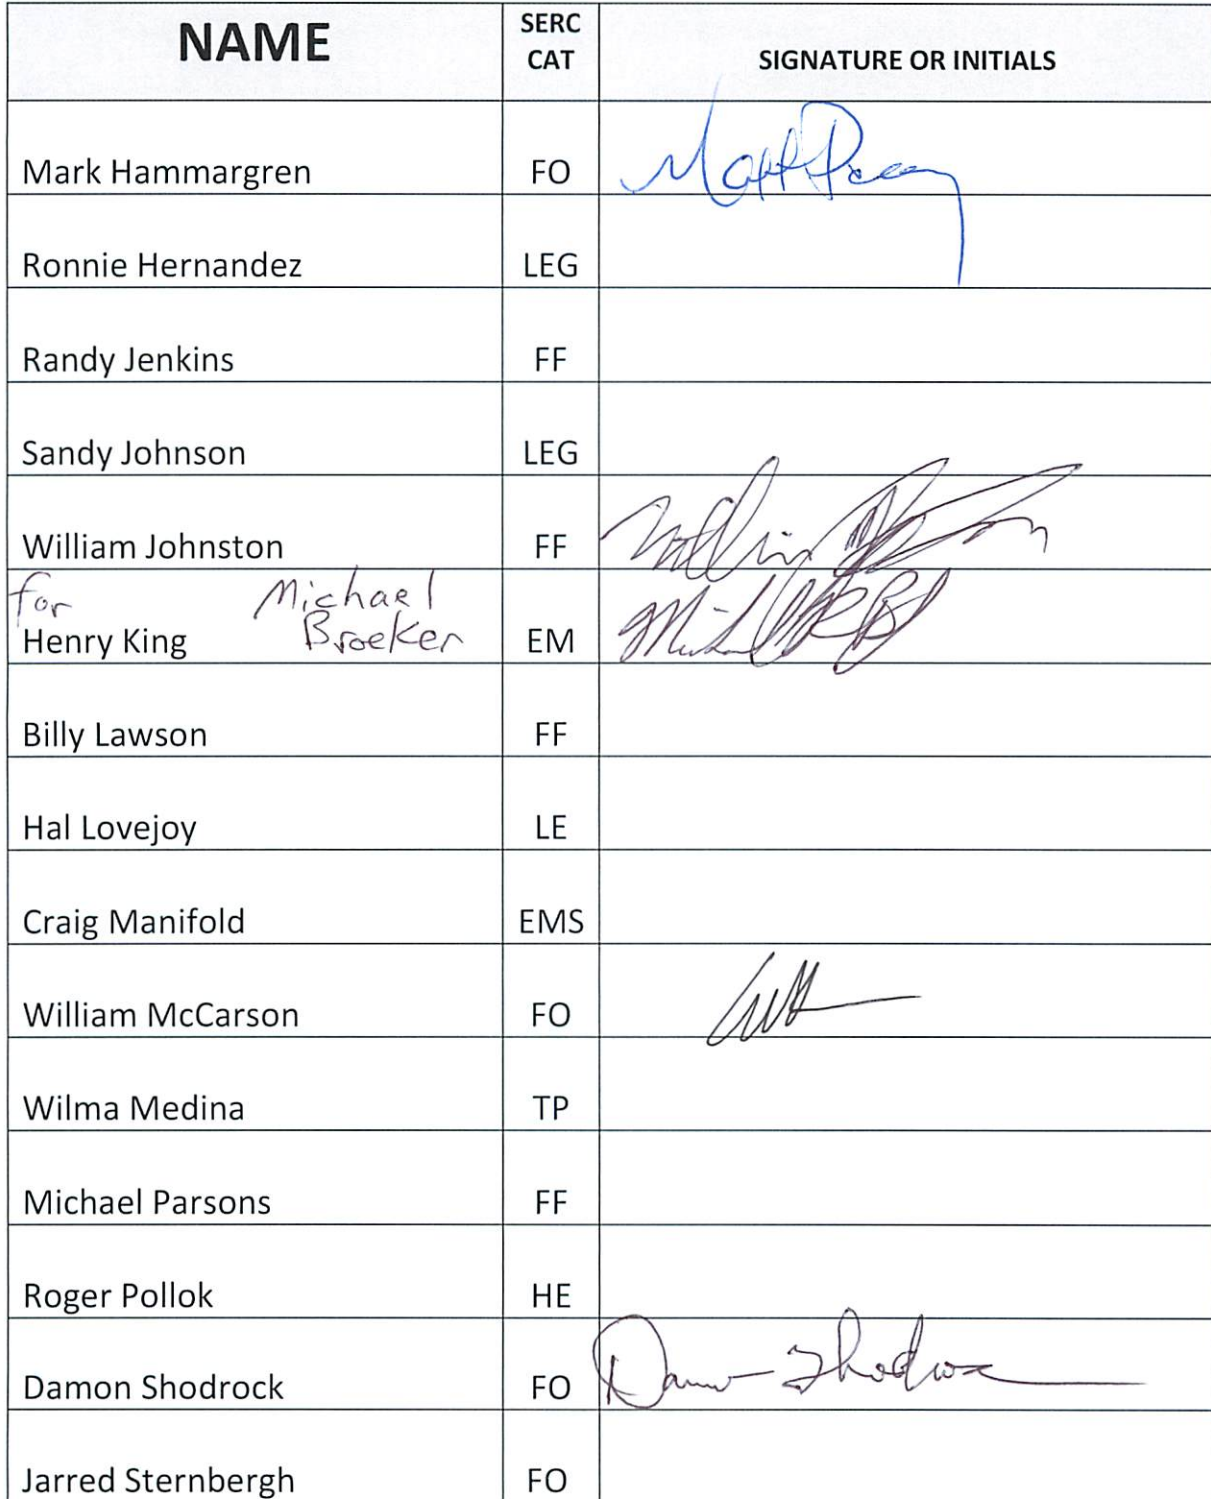 NAME SERC CAT SIGNATURE OR INITIALS
Mark Hammargren FO
Ronnie Hernandez LEG
Randy Jenkins FF
Sandy Johnson LEG
William Johnston FF
for Michael Broeker
Henry King EM
Billy Lawson FF
Hal Lovejoy LE
Craig Manifold EMS
William McCarson FO
Wilma Medina TP
Michael Parsons FF
Roger Pollok HE
Damon Shodrock FO Damon Shodrock
Jarred Sternbergh FO